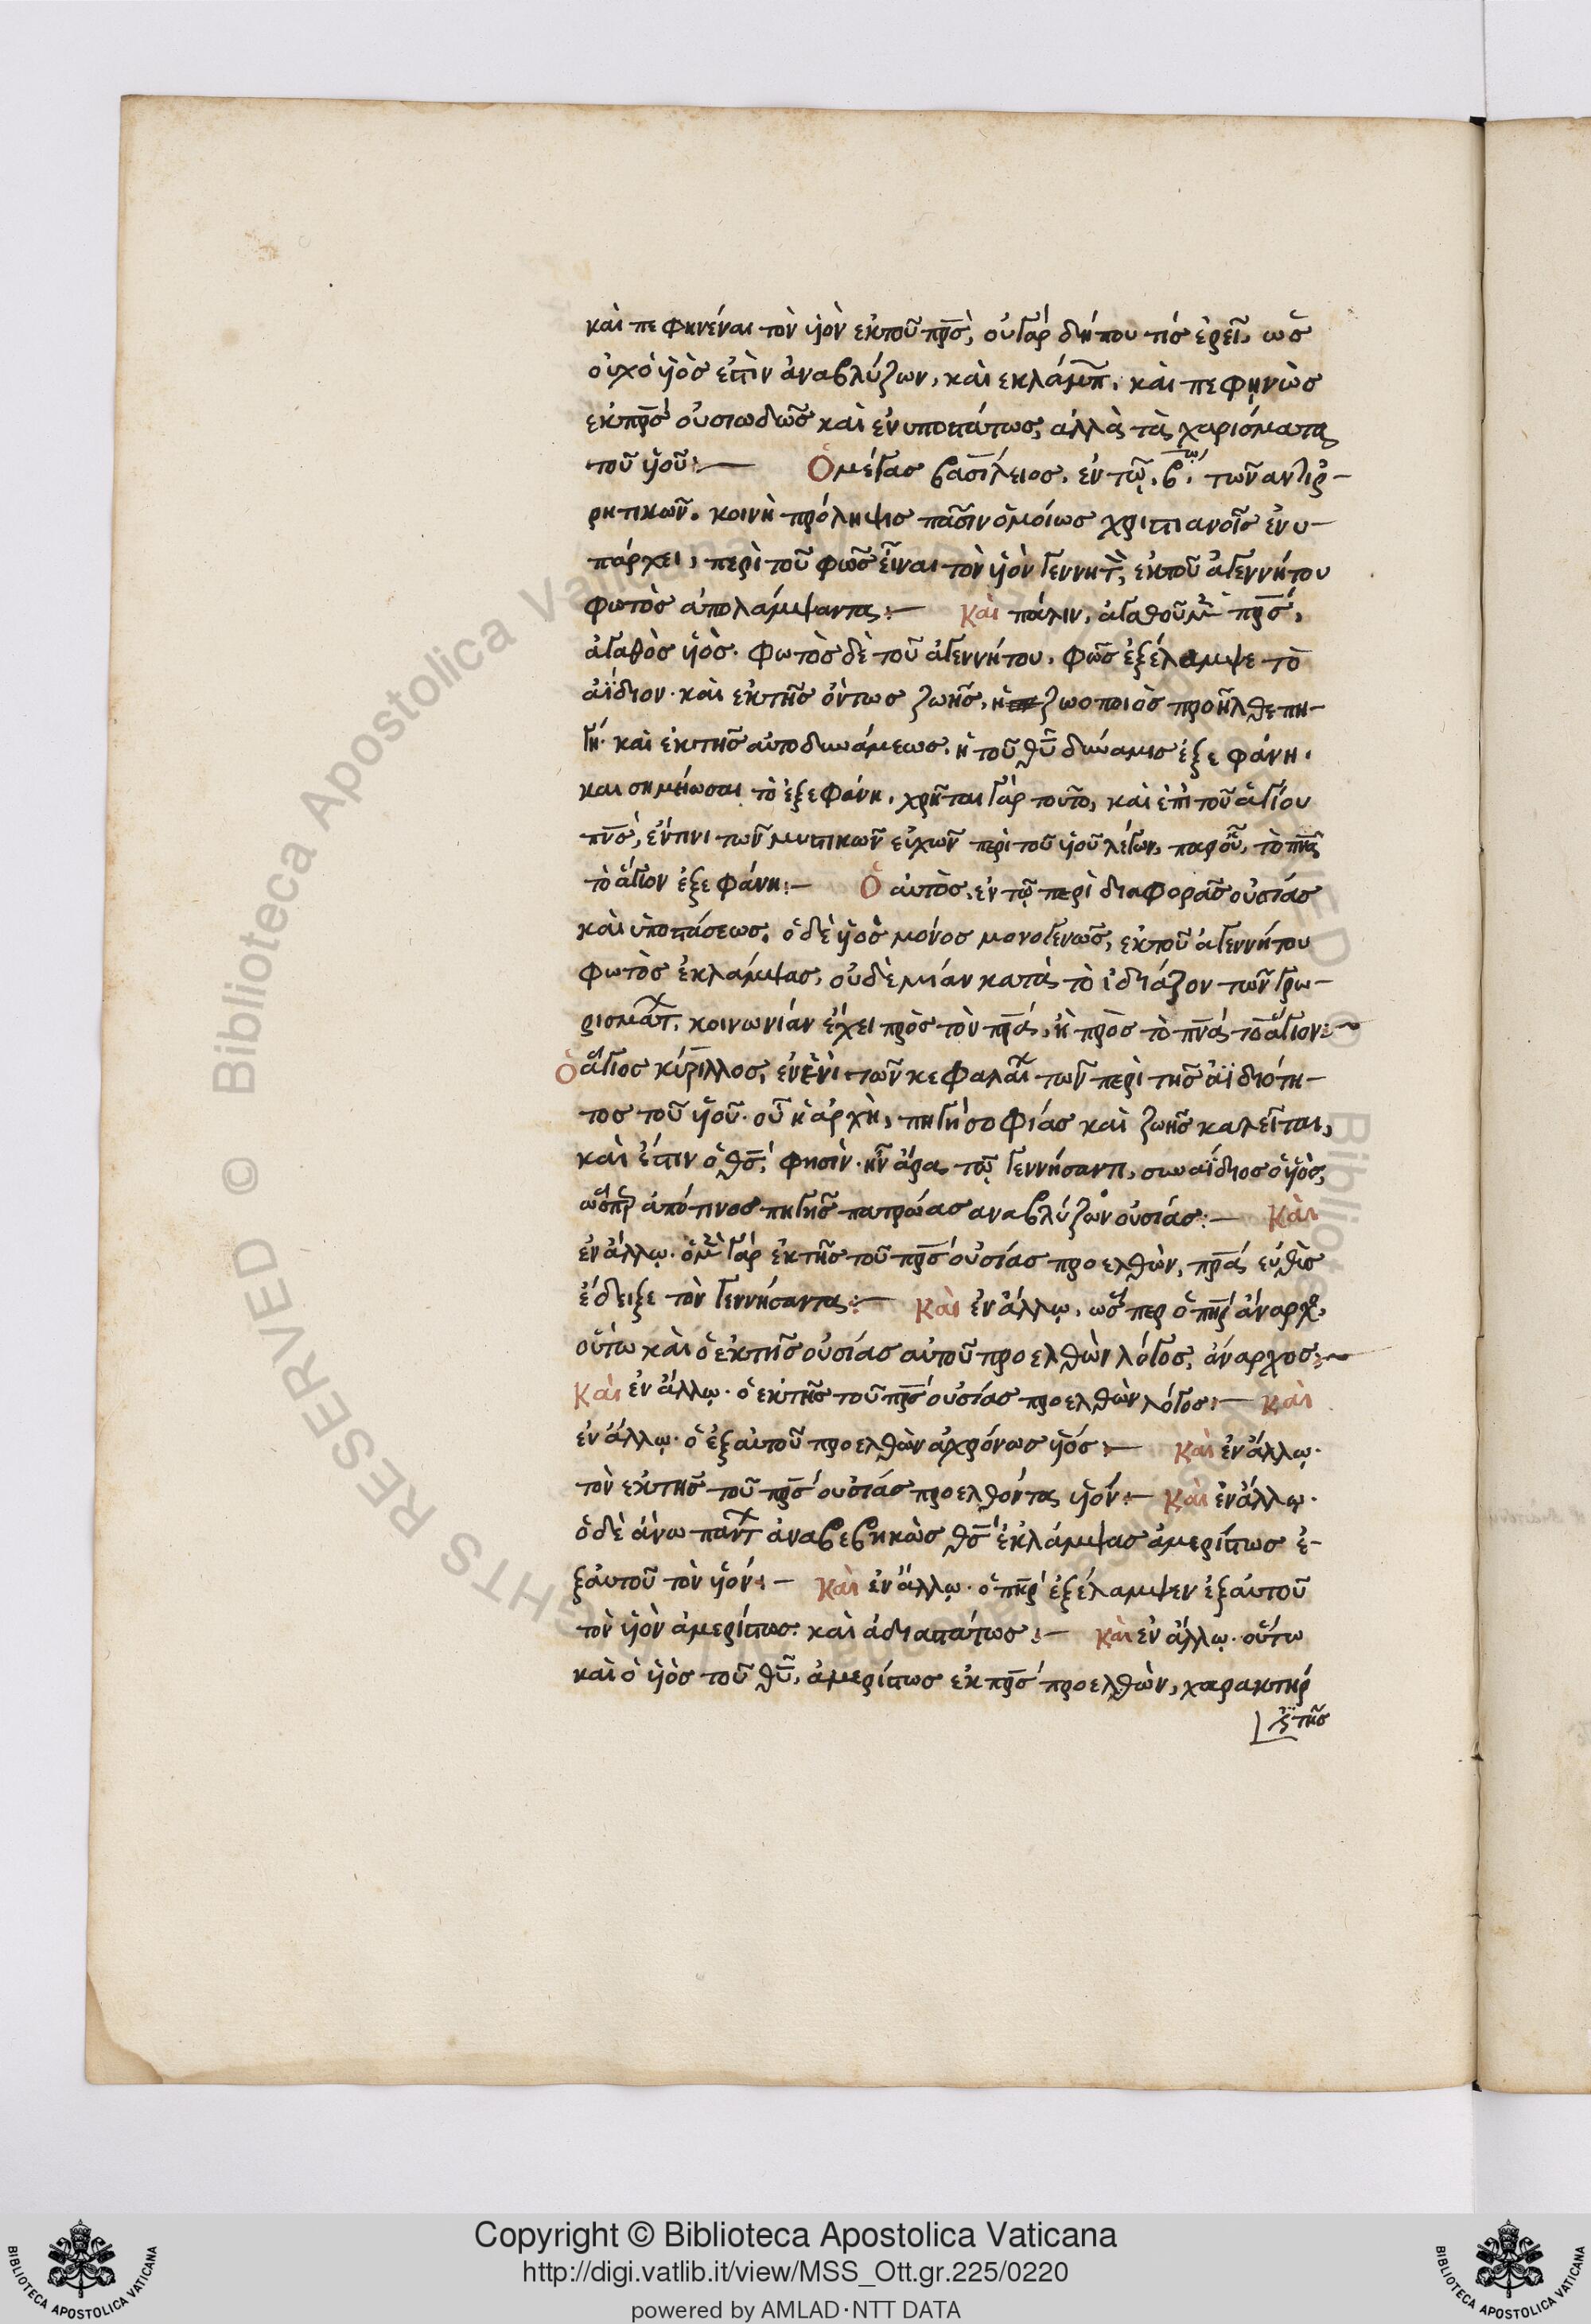 καὶ πεφηνέναι τὸν υἱὸν ἐκ τοῦ πρσ̅, οὐ γάρ δήπου τίσ ἐρεῖ, ὡσ
οὐχ ὁ υἱὸσ ἐστὶν ἀναβλύζων, καὶ ἐκλάμπ̅. καὶ πεφηνὼσ
ἐκ πρσ̅ οὐσιωδῶσ καὶ ἐνυποστάτωσ, ἀλλὰ τὰ χαρίσματα
τοῦ υἱοῦ:— Ὁ μέγασ βασίλειοσ. ἐν τῷ. β̅ῳ. τῶν ἀντιρ-
ρητικῶν. κοινὴ πρόληψισ πᾶσιν ὁμοίωσ χριστιανοῖσ ἐνυ-
πάρχει, περὶ τοῦ φῶσ εἶναι τὸν υἱὸν γεννητ̀, ἐκ τοῦ ἀγεννήτου
φωτὸσ ἀπολάμψαντα:— Καὶ πάλιν, ἀγαθοῦ μὲν πρσ̅,
ἀγαθὸσ υἱὸσ. φωτὸσ δὲ τοῦ ἀγεννήτου. φῶσ ἐξέλαμψε τὸ
ἀΐδιον. καὶ ἐκ τῆσ ὄντωσ ζωῆσ, ἡ ζωοποιὸσ προῆλθε πη-
γή. καὶ ἐκ τῆσ αὐτοδυνάμεωσ, ἡ τοῦ θυ̅ δύναμισ ἐξεφάνη.
και σημείωσαι τὸ ἐξεφάνη. χρῆται γάρ τοῦτο, καὶ ἐπὶ τοῦ ἁγίου
πνσ̅, ἔν τινι τῶν μυστικῶν εὐχῶν περὶ τοῦ υἱοῦ λέγων, παρ οὗ, τὸ πνα̅
τὸ ἅγιον ἐξεφάνη:— Ὁ αὐτὸσ, ἐν τῷ περὶ διαφορᾶσ οὐσίασ
καὶ ὑποστάσεωσ. ὁ δὲ υἱὸσ μόνοσ μονογενῶσ, ἐκ τοῦ ἀγεννήτου
φωτὸσ ἐκλάμψασ, οὐδὲ μίαν κατὰ τὸ ἰδιάζον τῶν γνω-
ρισμάτ. κοινωνίαν ἔχει πρὸσ τὸν πρα̅, ἢ πρὸσ τὸ πνα̅ τὸ ἅγιον:~
Ὁ ἅγιοσ κύριλλοσ, ἐν ἑνὶ τῶν κεφαλαί τῶν περὶ τῆσ ἀϊδιότη-
τοσ τοῦ υἱοῦ. οὗ ἡ ἀρχὴ, πηγὴ σοφίασ καὶ ζωῆσ καλεῖται,
καὶ ἔστιν ὁ θσ̅, φησὶν. ἦν ἄρα τῷ γεννήσαντι, συναΐδιοσ ὁ υἱὸσ,
ὥσπερ ἀπό τινοσ πηγῆσ πατρώασ ἀναβλύζων οὐσίασ:— Καὶ
ἐν ἄλλῳ. ὁ μὲν γάρ ἐκ τῆσ τοῦ πρσ̅ οὐσίασ προελθὼν, πρα̅ εὐθὺσ
ἔδειξε τὸν γεννήσαντα:— Καὶ ἐν ἄλλῳ. ὥσπερ ὁ πηρ̅ ἄναρχο.
οὕτω καὶ ὁ ἐκ τῆσ οὐσίασ αὐτοῦ προελθὼν λόγοσ, ἄναρχοσ:~
Καὶ ἐν ἄλλῳ. ὁ ἐκ τῆσ τοῦ πρσ̅ οὐσίασ προελθὼν λόγοσ:— Καὶ
ἐν ἄλλῳ. ὁ ἐξ αὐτοῦ προελθὼν ἀχρόνωσ υἱόσ:— Καὶ ἐν ἄλλῳ.
τὸν ἐκ τῆσ τοῦ πρσ̅ οὐσίασ προελθόντα υἱόν:— Καὶ ἐν ἄλλῳ.
ὁ δὲ ἄνω πάντ ἀναβεβηκὼσ θσ̅ ἐκλάμψασ ἀμερίστωσ ἐ-
ξ αὐτοῦ τὸν υἱόν:— Καὶ ἐν ἄλλῳ. ὁ πηρ̅ ἐξέλαμψεν ἐξ αὐτοῦ
τὸν υἱὸν ἀμερίστωσ καὶ ἀδιαστάτωσ:— Καὶ ἐν ἄλλῳ. οὕτω
καὶ ὁ υἱὸσ τοῦ θυ̅, ἀμερίστωσ ἐκ πρσ̅ προελθὼν, χαρακτήρ
ἐστι τῆσ
Copyright © Biblioteca Apostolica Vaticana
http://digi.vatlib.it/view/MSS_Ott.gr.225/0220
powered by AMLAD·NTT DATA